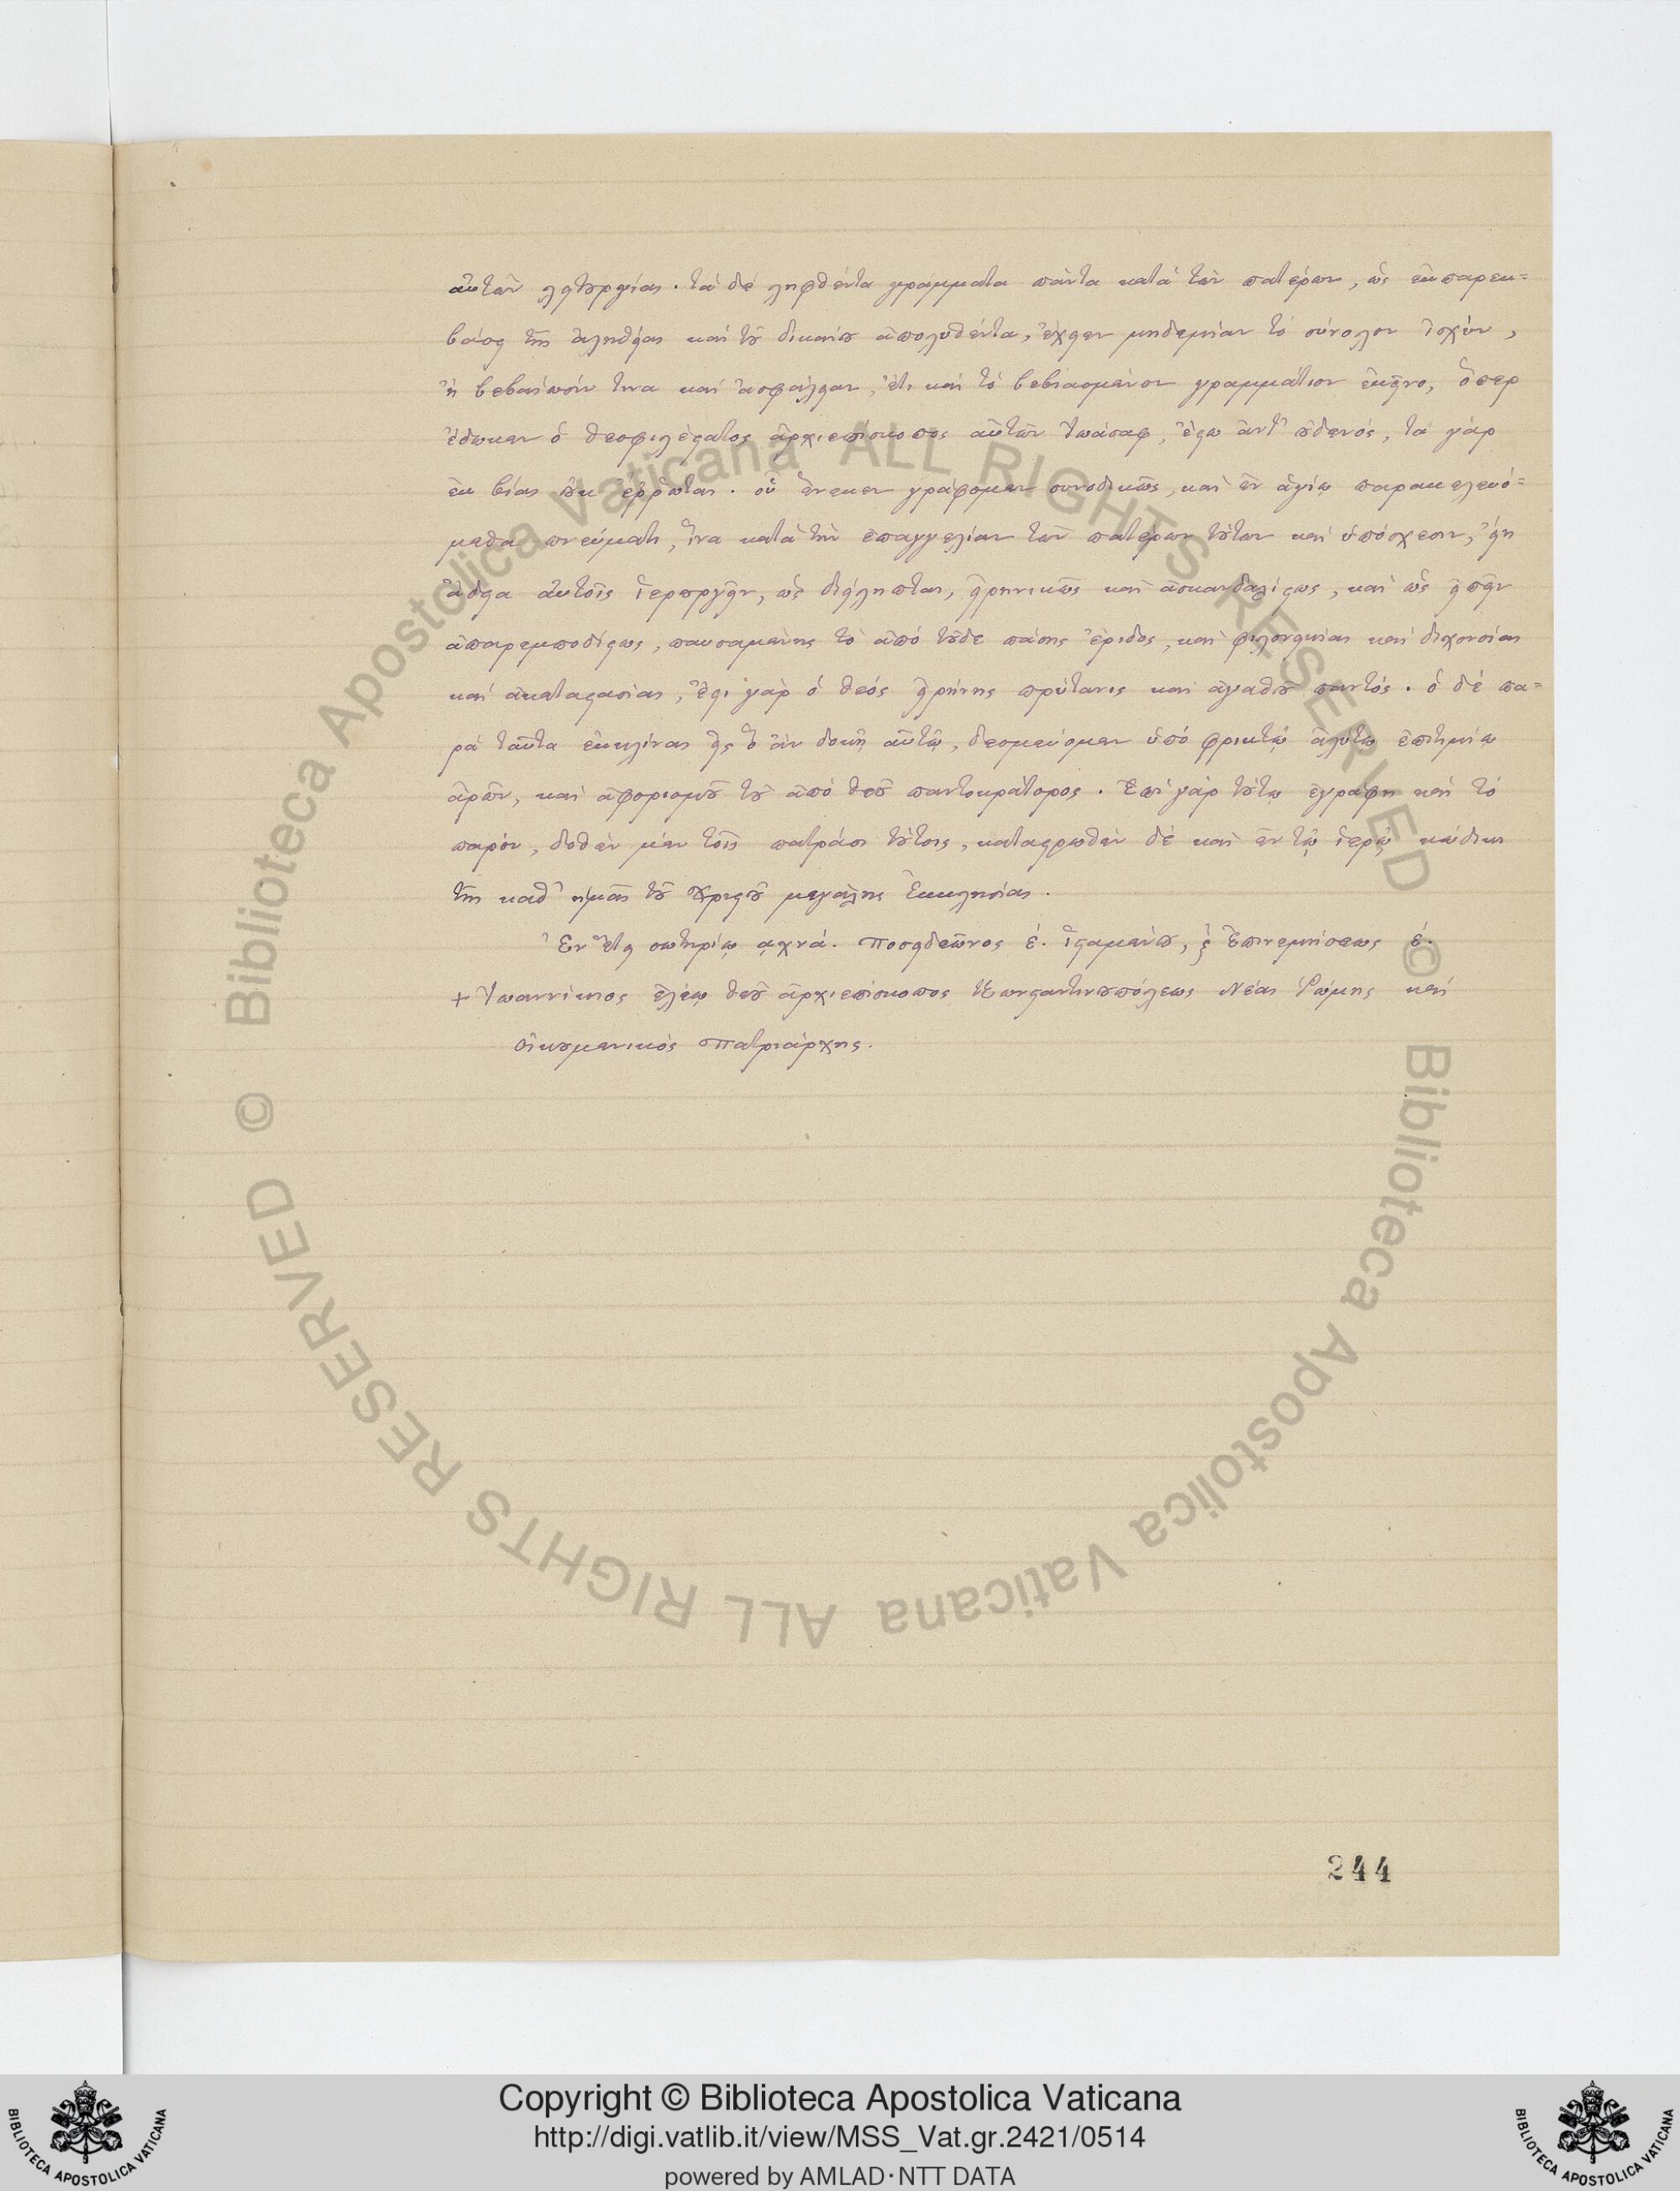 αὐτῶν λειτουργίας. τὰ δὲ ληφθέντα γράμματα πάντα κατὰ τῶν πατέρων, ὡς ἐκ παρεκ=
βάσεως τῆς ἀληθείας καὶ τοῦ δικαίου ἀπολυθέντα, ἔχειν μηδεμίαν τὸ σύνολον ἰσχύν,
ἢ βεβαίωσίν τινα καὶ ἀσφάλειαν, ἔτι καὶ τὸ βεβιασμένον γραμμάτιον ἐκεῖνο, ὅπερ
ἔδωκεν ὁ θεοφιλέστατος ἀρχιεπίσκοπος αὐτῶν Ἰωάσαφ, ἔστω ἀντ' οὐδενός, τὰ γὰρ
ἐκ βίας οὐκ ἔρρωται. οὗ ἕνεκεν γράφομεν συνοδικῶς, καὶ ἐν ἁγίῳ παρακελευό=
μεθα πνεύματι, ἵνα κατὰ τὴν ἐπαγγελίαν τῶν πατέρων τούτων καὶ ὑπόσχεσιν, εἴη
ἄδεια αὐτοῖς ἱερουργεῖν, ὡς διείληπται, εἰρηνικῶς καὶ ἀσκανδαλίστως, καὶ ὡς εἰπεῖν
ἀπαρεμποδίστως, παυσαμένης τὸ ἀπὸ τοῦδε πάσης ἔριδος, καὶ φιλονεικίας καὶ διχονοίας
καὶ ἀκαταστασίας, ἔστι γὰρ ὁ θεὸς εἰρήνης πρύτανις καὶ ἀγαθοῦ παντός. ὁ δὲ πα=
ρὰ ταῦτα ἐκκλίνας εἰς ὃ ἂν δοκῇ αὐτῷ, δεσμεύομεν ὑπὸ φρικτῷ ἀλύτῳ ἐπιτιμίῳ
ἀρῶν, καὶ ἀφορισμοῦ τοῦ ἀπὸ θεοῦ παντοκράτορος. Ἐπὶ γὰρ τούτῳ ἐγράφη καὶ τὸ
παρόν, δοθὲν μὲν τοῖς πατράσι τούτοις, καταστρωθὲν δὲ καὶ ἐν τῷ ἱερῷ κώδικι
τῆς καθ' ἡμᾶς τοῦ Χριστοῦ μεγάλης Ἐκκλησίας.
Ἐν ἔτει σωτηρίῳ αχνά. Ποσειδεῶνος έ. ἱσταμένου, ξ Ἐπινεμήσεως έ.
+ Ἰωαννίκιος ἐλέῳ θεοῦ ἀρχιεπίσκοπος Κωνσταντινουπόλεως Νέας Ῥώμης καὶ
οἰκουμενικὸς Πατριάρχης.
244
© Biblioteca Apostolica Vaticana ALL RIGHTS RESERVED
© Biblioteca Apostolica Vaticana ALL RIGHTS RESERVED
Copyright © Biblioteca Apostolica Vaticana
http://digi.vatlib.it/view/MSS_Vat.gr.2421/0514
powered by AMLAD·NTT DATA
BIBLIOTECA APOSTOLICA VATICANA
BIBLIOTECA APOSTOLICA VATICANA